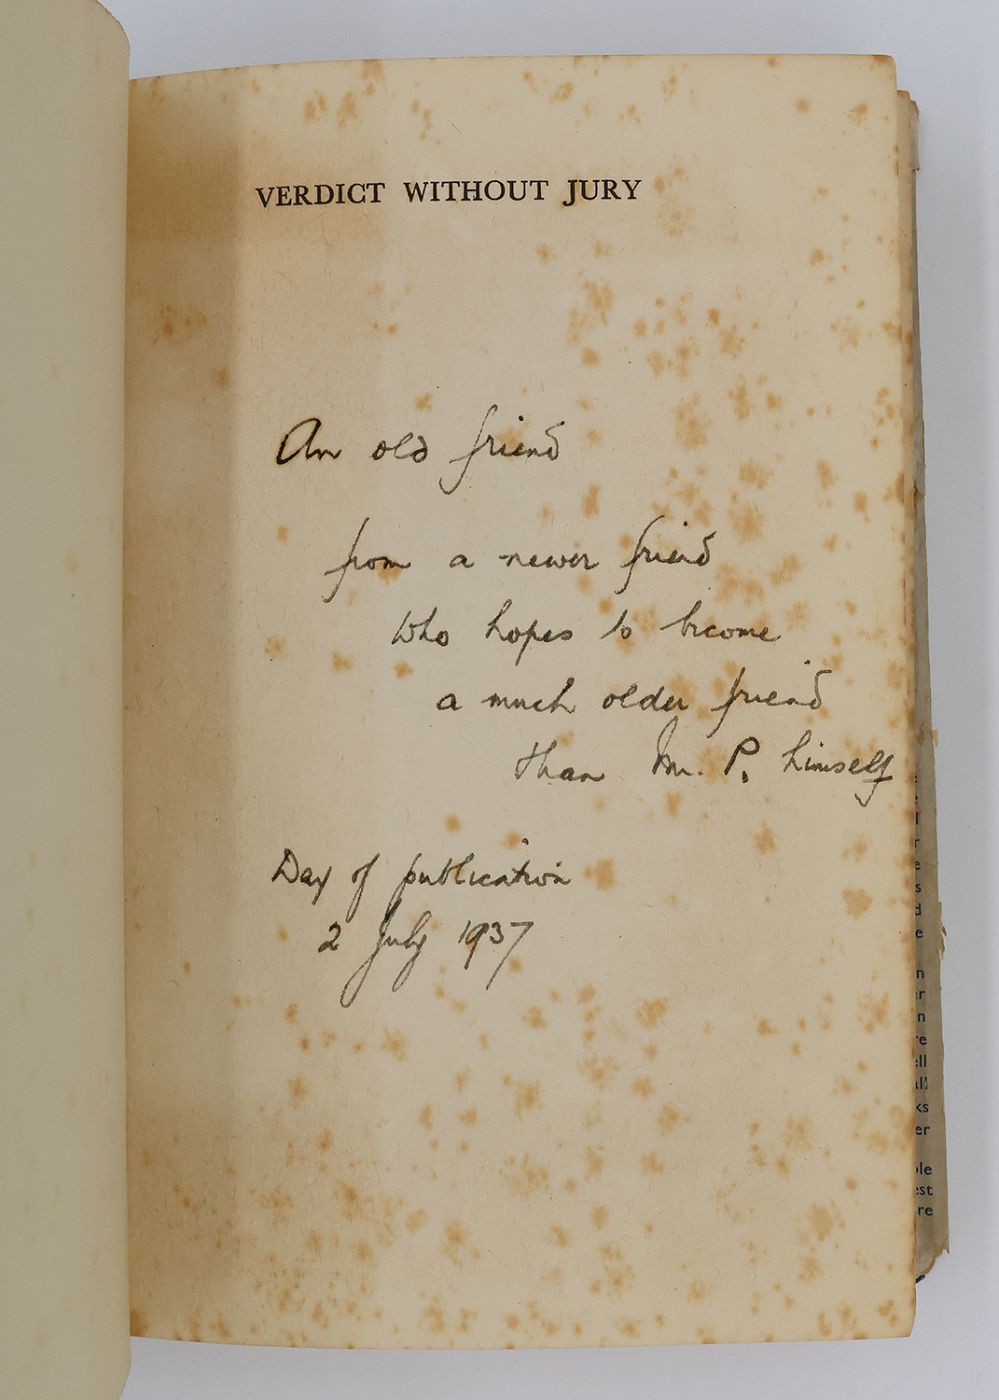 VERDICT WITHOUT JURY
An old friend
from a newer friend
who hopes to become
a much older friend
than Mr. P. himself
Day of publication
2 July 1937
e
e
f
r
e
s
d
e
n
er
n
re
ell
ks
er
ole
est
re